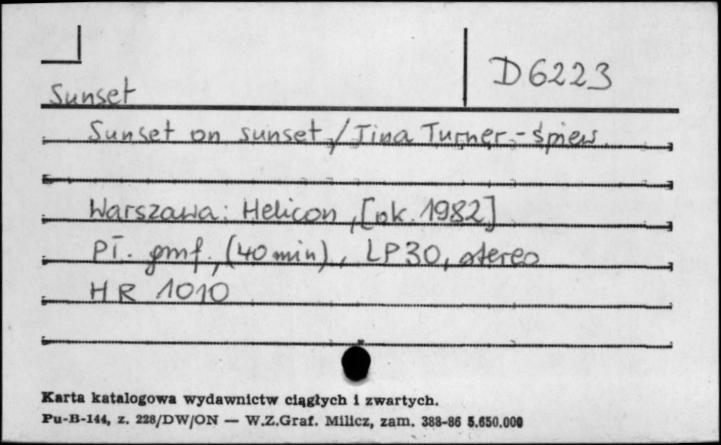 D6223
Sunset
Sunset on sunset / Tina Turner - śpiew.
Warszawa: Helicon, [ok. 1982]
Pł. gmf., (40 min), LP30, stereo
HR 1010
Karta katalogowa wydawnictw ciągłych i zwartych.
Pu-B-144, z. 228/DW/ON — W.Z.Graf. Milicz, zam. 388-86 5.650.000